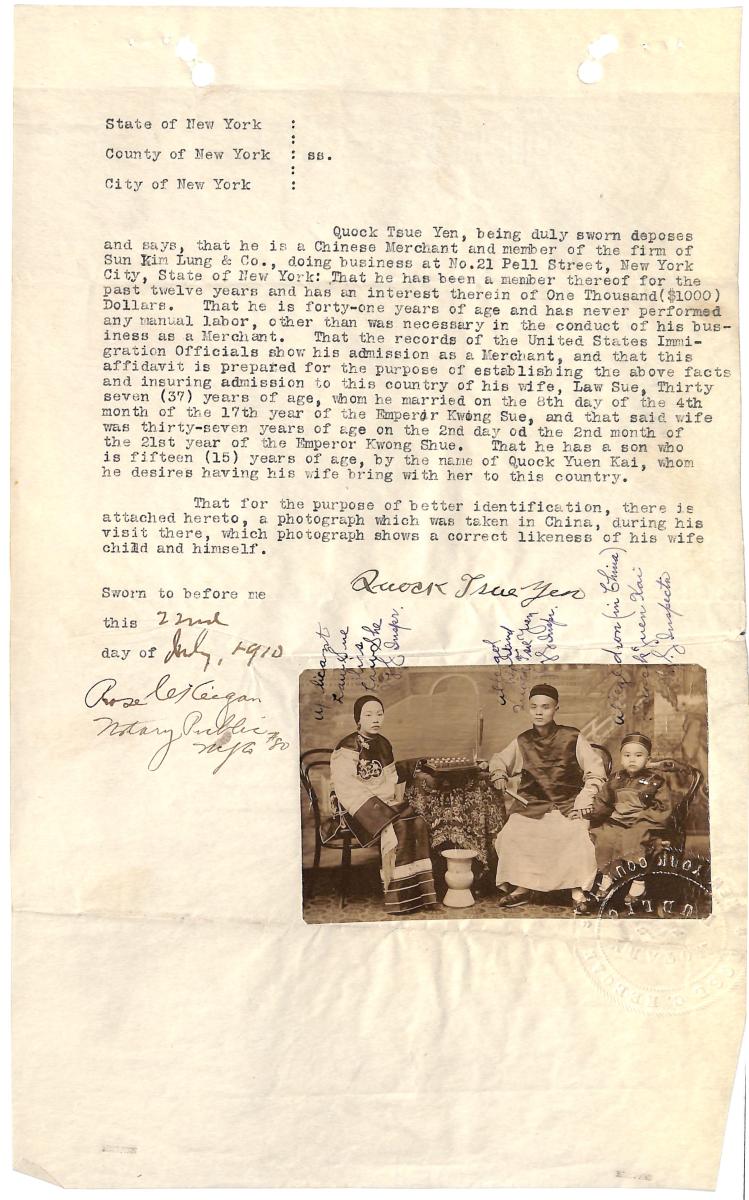 State of New York :
:
County of New York : ss.
:
City of New York :
Quock Tsue Yen, being duly sworn deposes
and says, that he is a Chinese Merchant and member of the firm of
Sun Kim Lung & Co., doing business at No.21 Pell Street, New York
City, State of New York: That he has been a member thereof for the
past twelve years and has an interest therein of One Thousand($1000)
Dollars. That he is forty-one years of age and has never performed
any manual labor, other than was necessary in the conduct of his bus-
iness as a Merchant. That the records of the United States Immi-
gration Officials show his admission as a Merchant, and that this
affidavit is prepared for the purpose of establishing the above facts
and insuring admission to this country of his wife, Law Sue, Thirty
seven (37) years of age, whom he married on the 8th day of the 4th
month of the 17th year of the Emperor Kwong Sue, and that said wife
was thirty-seven years of age on the 2nd day od the 2nd month of
the 21st year of the Emperor Kwong Shue. That he has a son who
is fifteen (15) years of age, by the name of Quock Yuen Kai, whom
he desires having his wife bring with her to this country.
That for the purpose of better identification, there is
attached hereto, a photograph which was taken in China, during his
visit there, which photograph shows a correct likeness of his wife
child and himself.
Quock Tsue Yen
Sworn to before me
this 22nd
day of July, 1910
Rose
Notary Public
NYC #80
Applicant
Law Sue
alias
Law She
Inspr.
alleged
husband
Quock Tsue Yen
Inspr.
alleged son (in China)
Quock Yuen Kai
Inspector